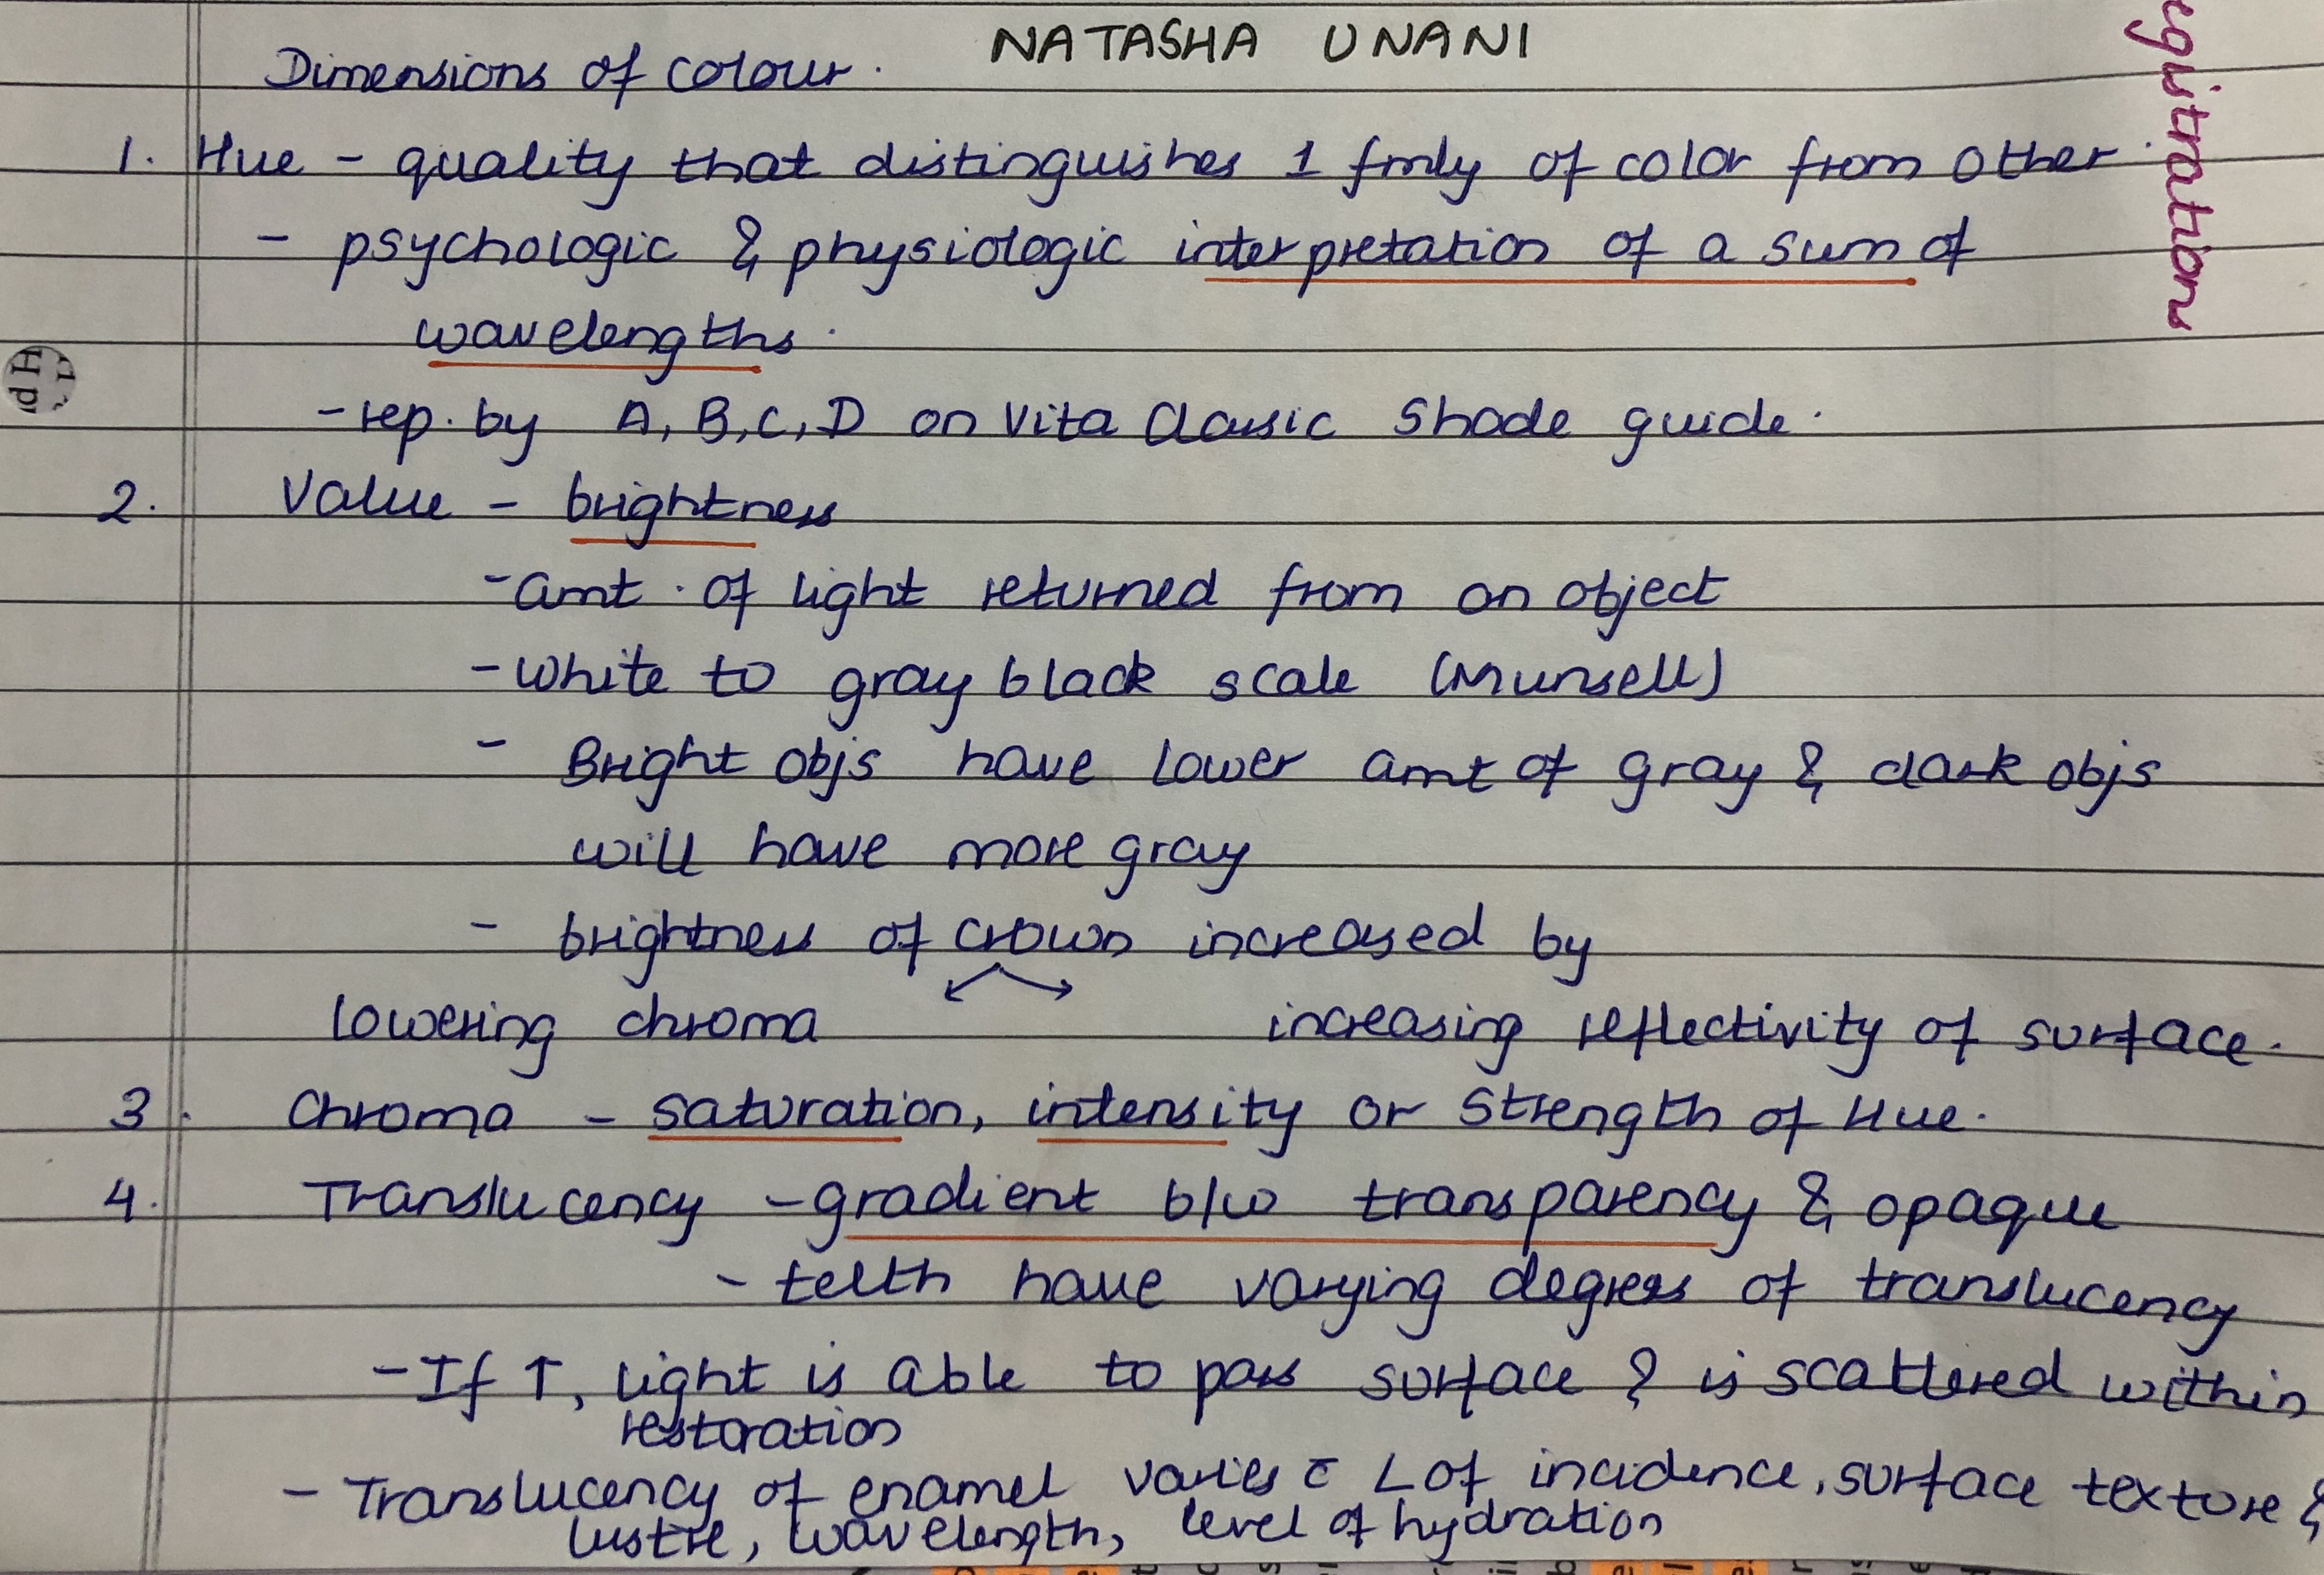 NATASHA UNANI
Dimensions of colour.
1. Hue - quality that distinguishes 1 fmly of color from other.
- psychologic & physiologic interpretation of a sum of
wavelengths.
- rep. by A, B, C, D on Vita Classic Shade guide.
2. Value - brightness
- amt. of light returned from an object
- white to gray black scale (Munsell)
- Bright objs have lower amt of gray & dark objs
will have more gray
- brightness of crown increased by
↙ ↘
lowering chroma increasing reflectivity of surface.
3. Chroma - saturation, intensity or strength of Hue.
4. Translucency - gradient b/w transparency & opaque
- teeth have varying degrees of translucency
- If ↑, light is able to pass surface & is scattered within
restoration
- Translucency of enamel varies c̄ ∠ of incidence, surface texture &
lustre, wavelength, level of hydration
egistrations